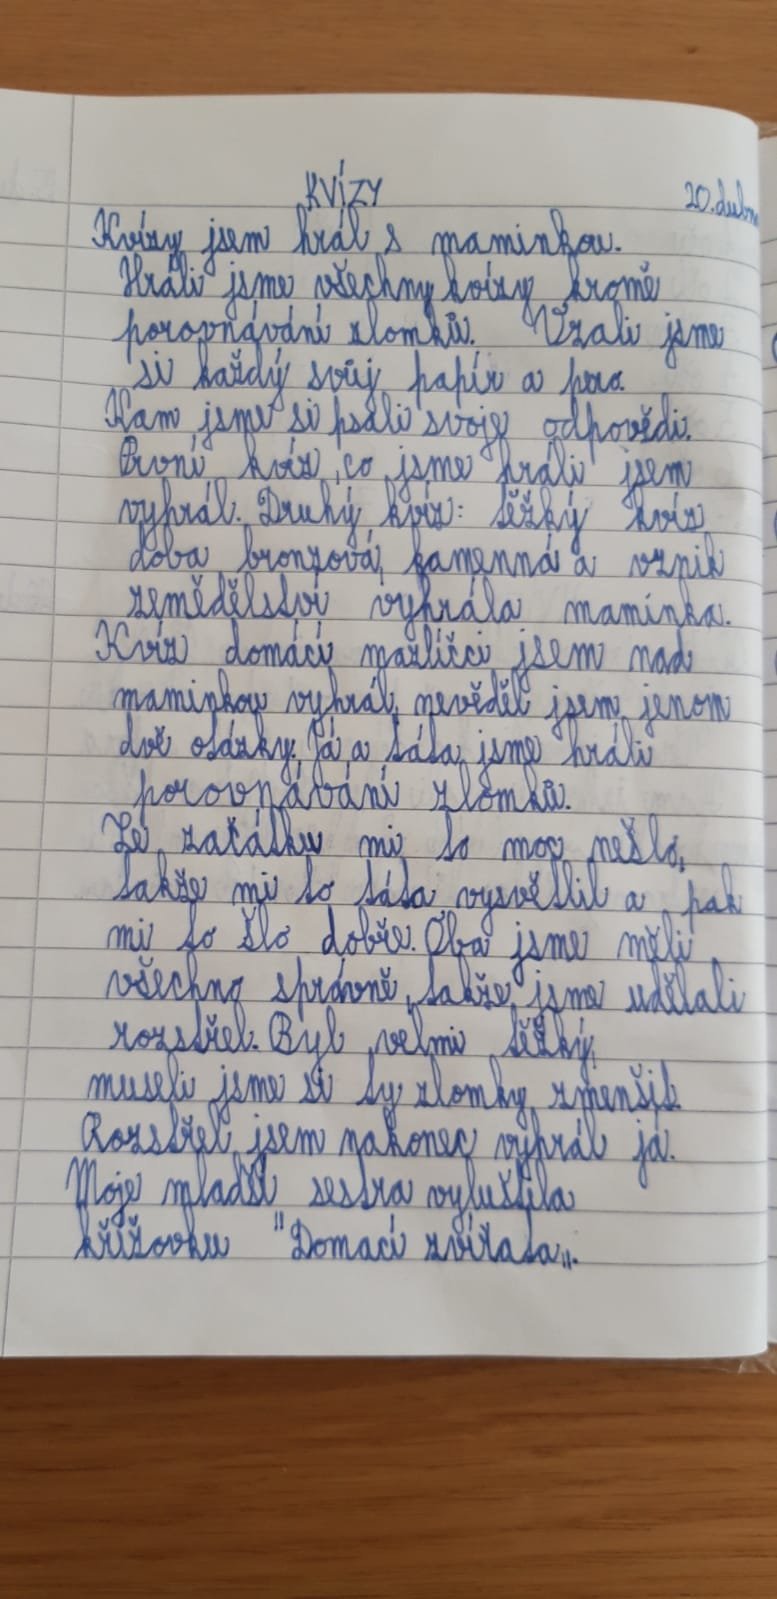 KVÍZY 20. dubna
Kvízy jsem hrál s maminkou.
Hráli jsme všechny kvízy kromě
porovnávání zlomků. Vzali jsme
si každý svůj papír a pero.
Kam jsme si psali svoje odpovědi.
První kvíz, co jsme hráli jsem
vyhrál. Druhý kvíz: těžký kvíz
doba bronzová, kamenná a vznik
zemědělství vyhrála maminka.
Kvíz domácí mazlíčci jsem nad
maminkou vyhrál, nevěděl jsem jenom
dvě otázky. Já a táta jsme hráli
porovnávání zlomků.
Ze začátku mi to moc nešlo,
takže mi to táta vysvětlil a pak
mi to šlo dobře. Oba jsme měli
všechno správně, takže jsme udělali
rozstřel. Byl velmi těžký,
museli jsme si ty zlomky zmenšit.
Rozstřel jsem nakonec vyhrál já.
Moje mladší sestra vyluštila
křížovku "Domací zvířata„.